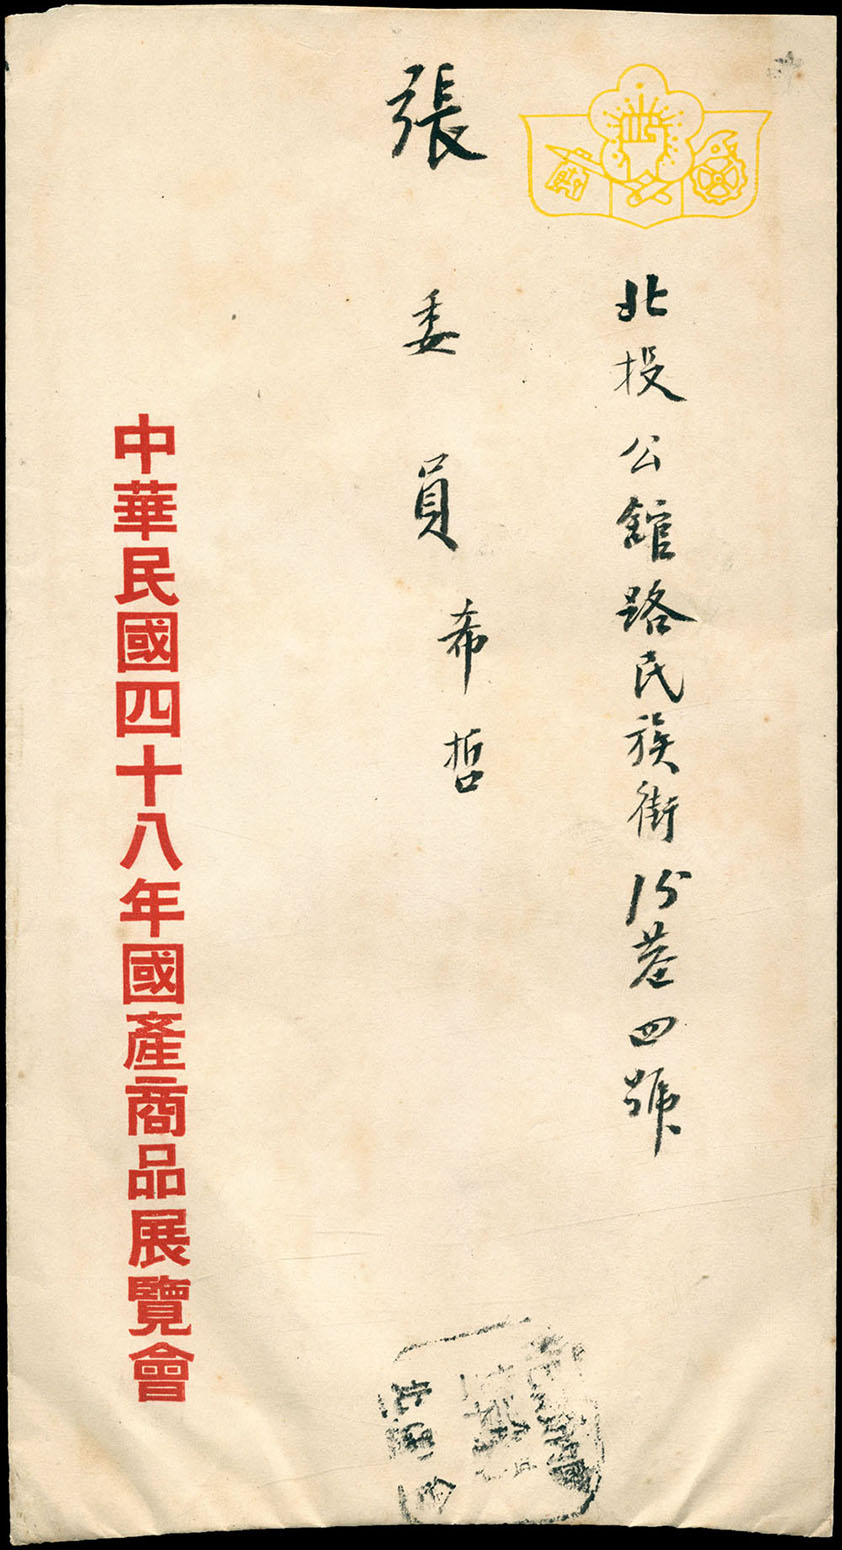 北投公館路民族街15巷四號
張委員希哲
中華民國四十八年國產商品展覽會